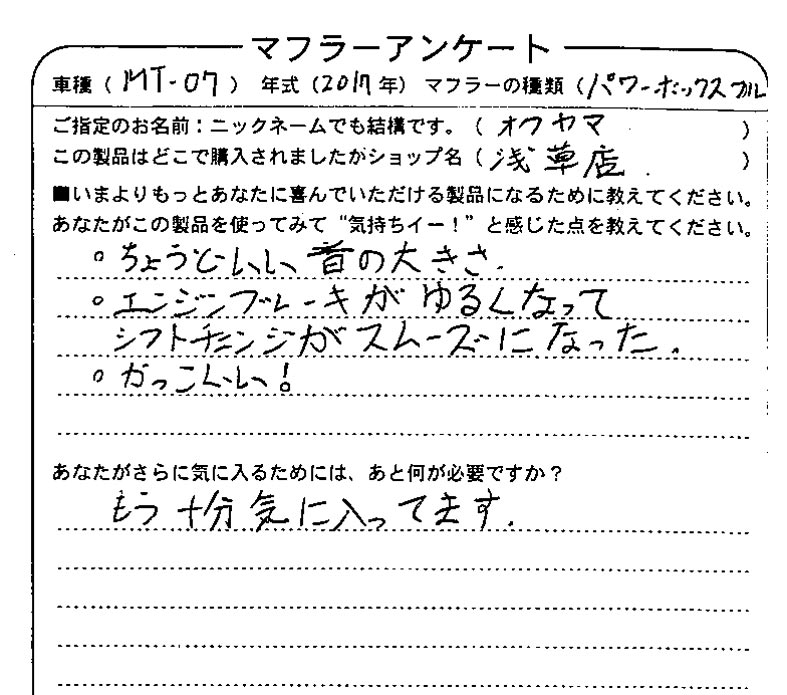 マフラーアンケート
車種（MT-07）　年式（2017年）　マフラーの種類（パワーボックスフル
ご指定のお名前：ニックネームでも結構です。（オクヤマ）
この製品はどこで購入されましたかショップ名（浅草店.）
■いまよりもっとあなたに喜んでいただける製品になるために教えてください。
あなたがこの製品を使ってみて“気持ちイー！”と感じた点を教えてください。
○ちょうどいい音の大きさ.
○エンジンブレーキがゆるくなって
シフトチェンジがスムーズになった.
○かっこいい！
あなたがさらに気に入るためには、あと何が必要ですか？
もう十分気に入ってます.